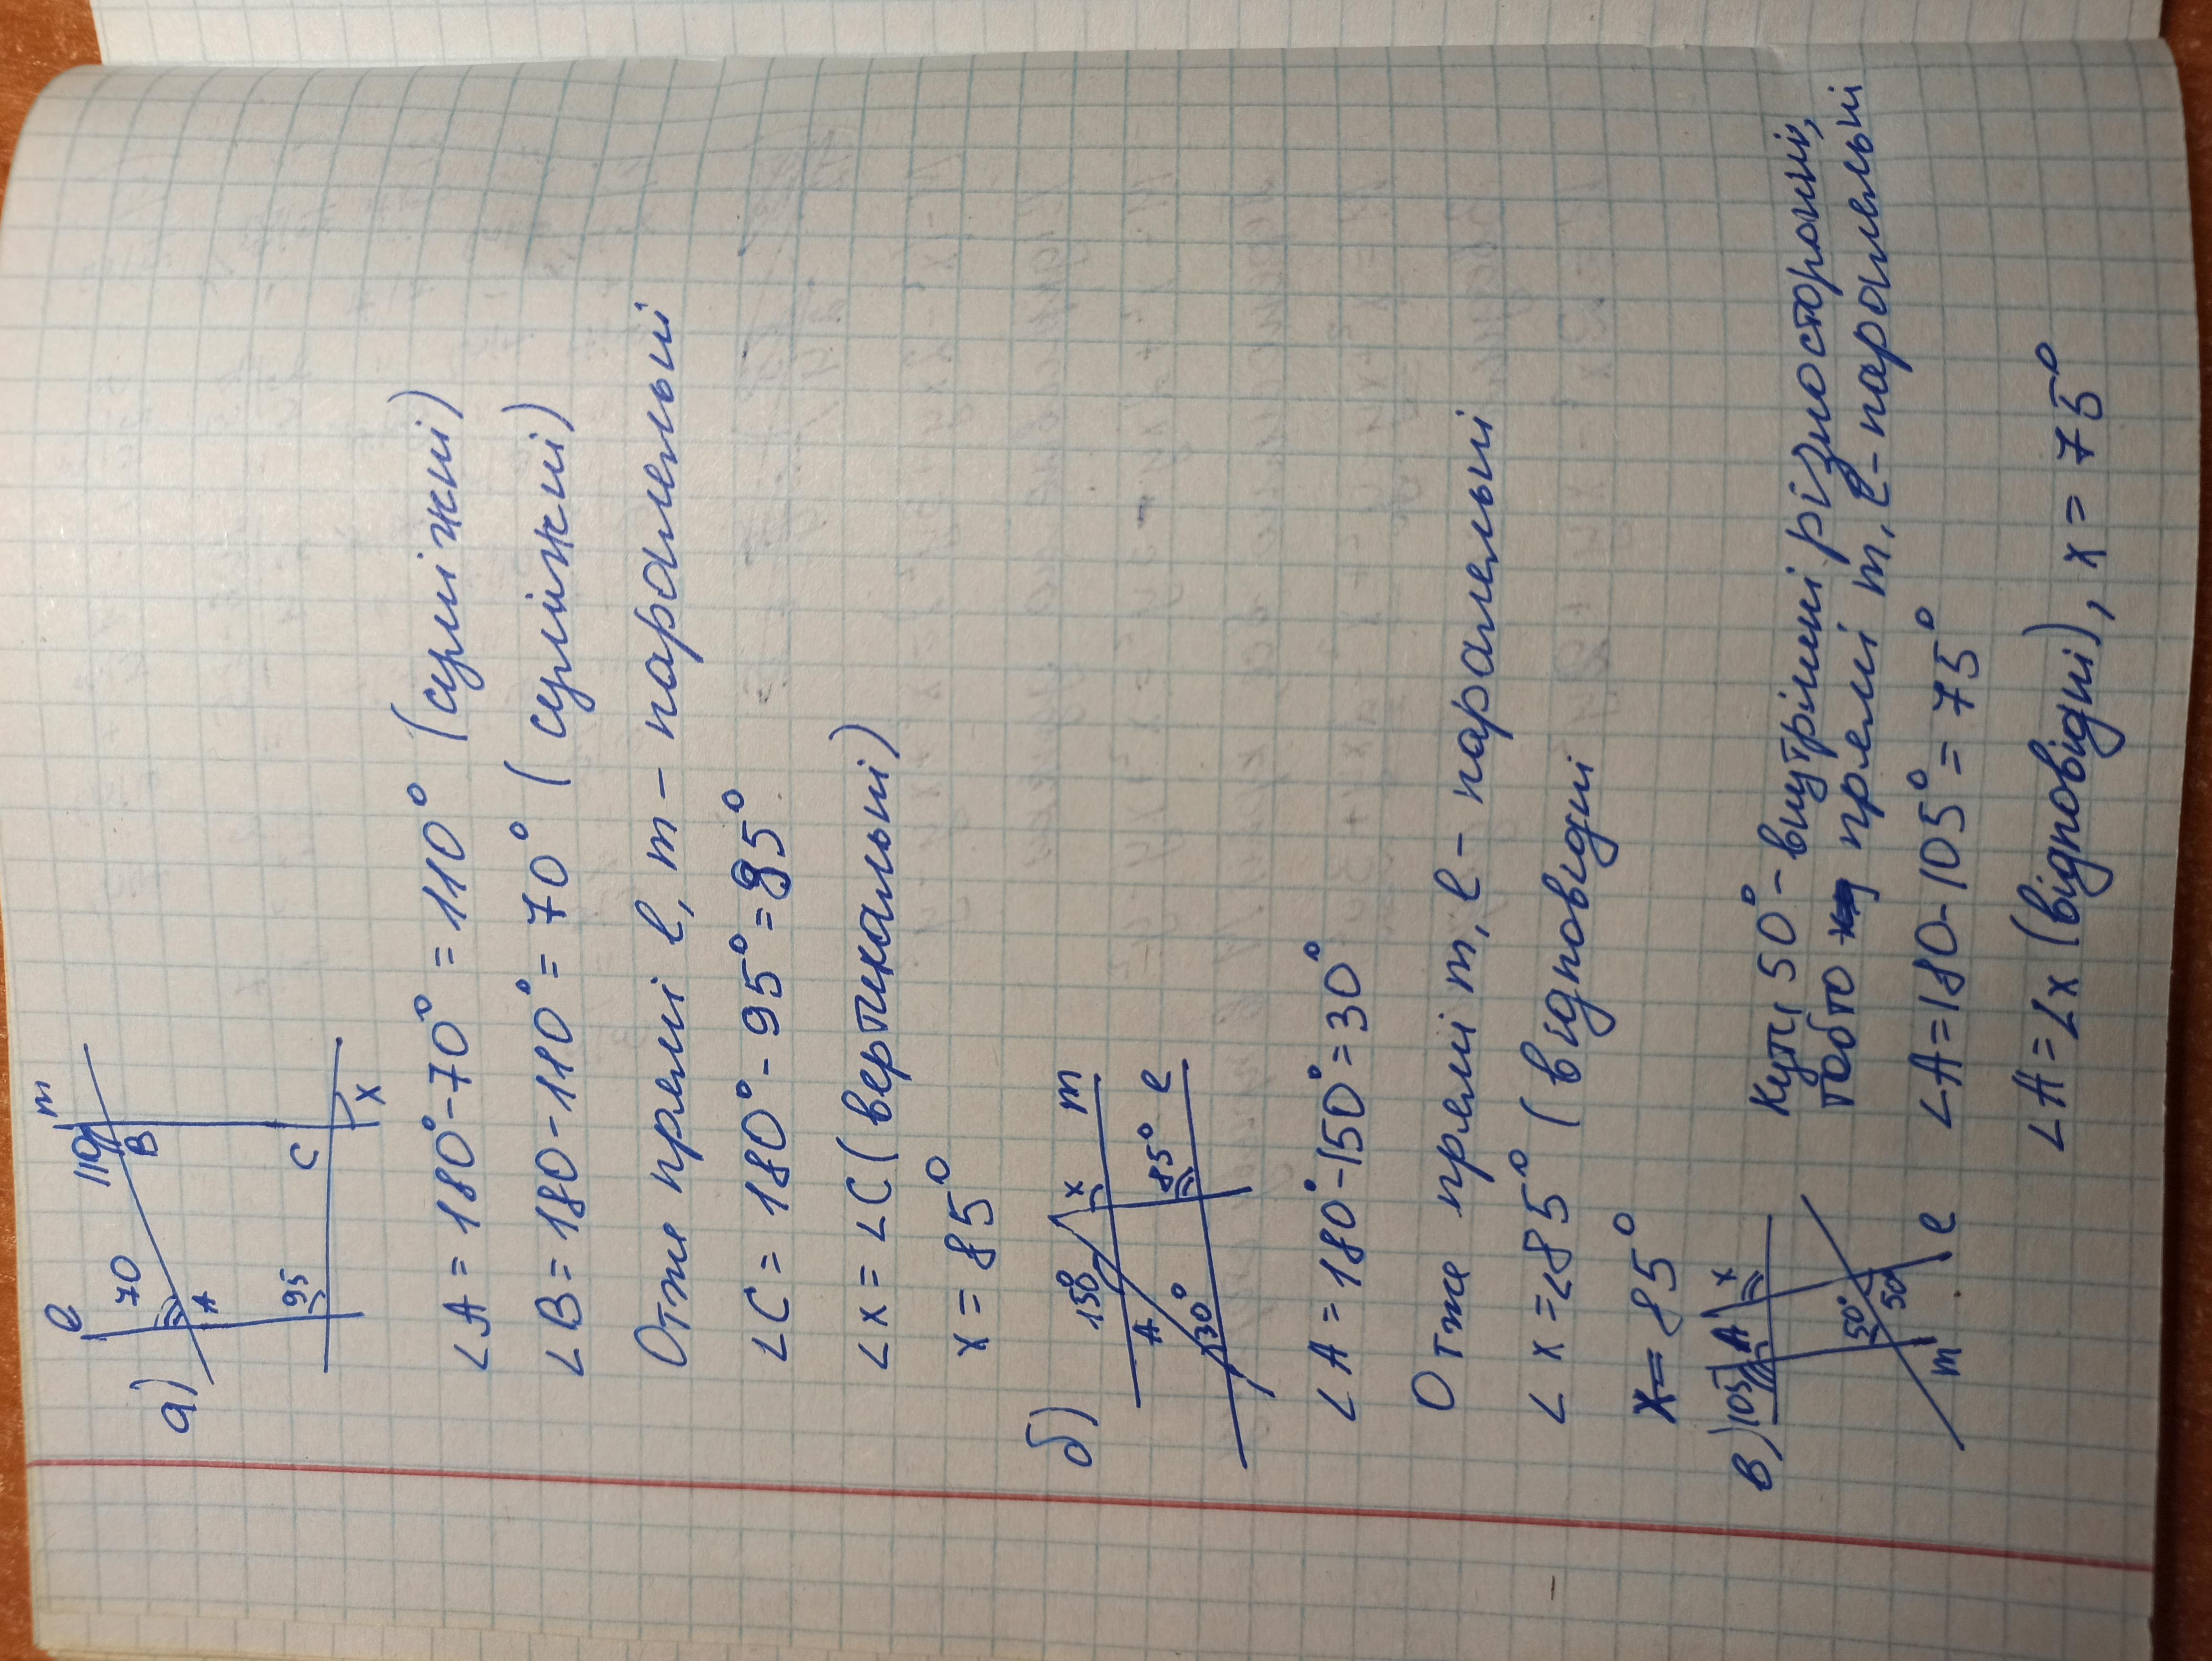 а)
l m
70 110
A B
95 C
x
∠A = 180° - 70° = 110° (суміжні)
∠B = 180 - 110° = 70° (суміжні)
Отже прямі l, m - паралельні
∠C = 180° - 95° = 85°
∠x = ∠C (вертикальні)
x = 85°
б)
150° x m
A
30° 85° l
∠A = 180° - 150° = 30°
Отже прямі m, l - паралельні
∠x = ∠85° (відповідні
x = 85°
в) 105 A x
50° 50
m l
Кути 50° - внутрішні різносторонні,
тобто прямі m, l - паралельні
∠A = 180 - 105° = 75°
∠A = ∠x (відповідні), x = 75°